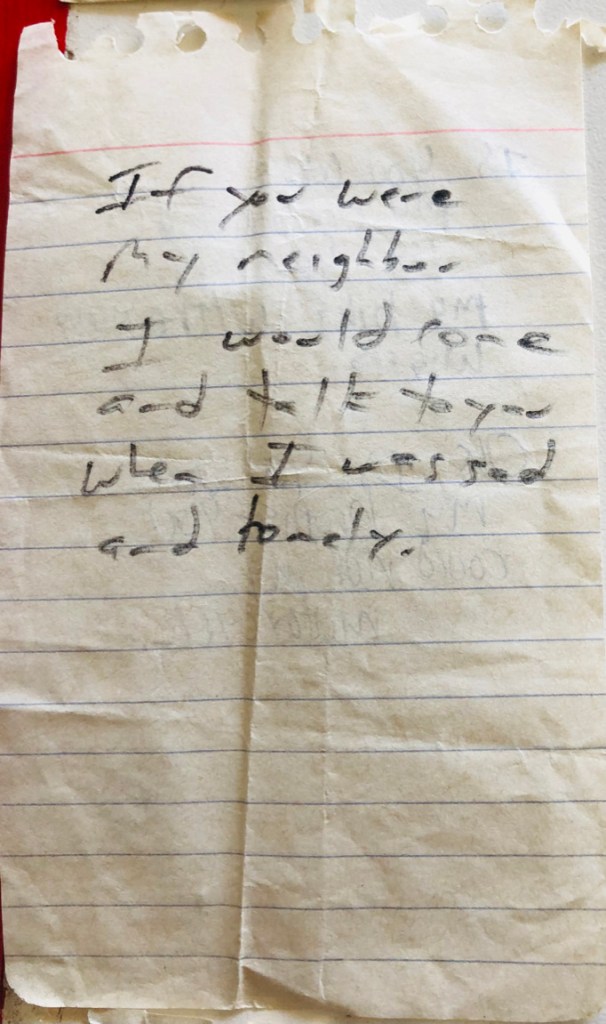 If you were
my neighbor
I would come
and talk to you
when I was sad
and lonely.